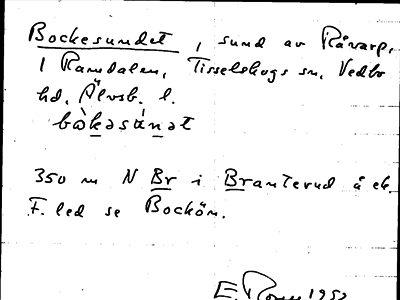 Bockesundet, sund av Råvarp,
i Ramdalen, Tisselskogs sn, Vedbo
hd, Älvsb. l.
bòkəsúnət
350 m N Br i Branterud å ek.
F. led se Bockön.
E. 1952